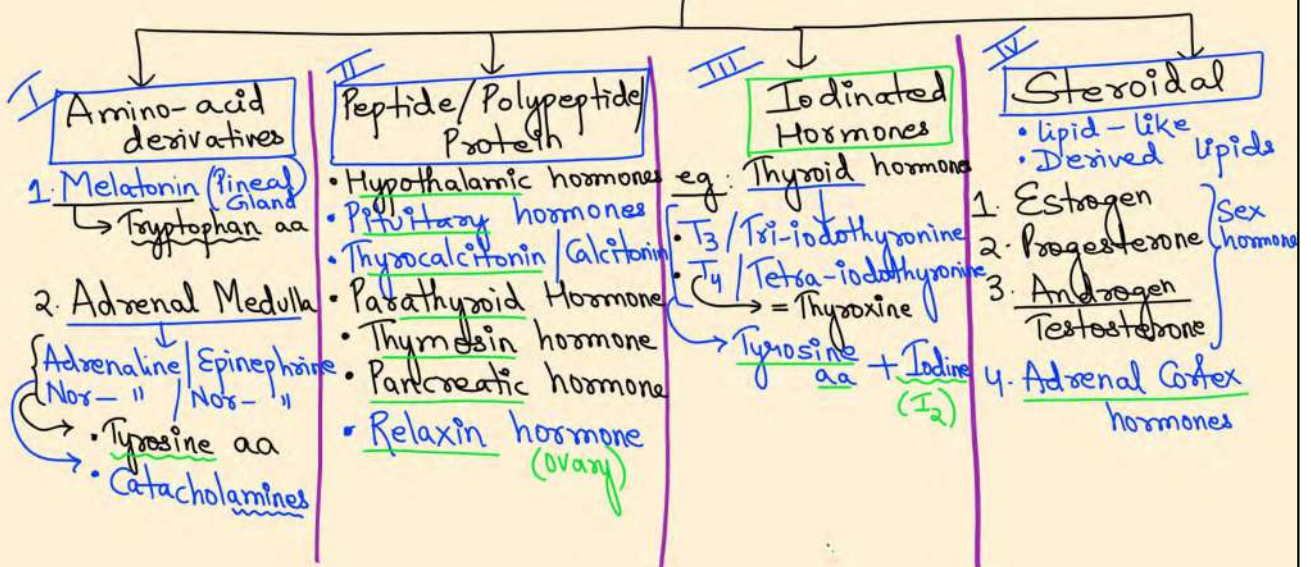 I
Amino-acid
derivatives
1. Melatonin (Pineal
Gland)
Tryptophan aa
2. Adrenal Medulla
Adrenaline / Epinephrine
Nor- " / Nor- "
• Tyrosine aa
• Catacholamines
II
Peptide/Polypeptide/
Protein
• Hypothalamic hormones
• Pituitary hormones
• Thyrocalcitonin / Calcitonin
• Parathyroid Hormone
• Thymosin hormone
• Pancreatic hormone
• Relaxin hormone
(ovary)
III
Iodinated
Hormones
eg: Thyroid hormone
• T3 / Tri-iodothyronine
• T4 / Tetra-iodothyronine
= Thyroxine
Tyrosine + Iodine
aa (I2)
IV
Steroidal
• lipid-like
• Derived lipids
1. Estrogen
2. Progesterone
3. Androgen
Testosterone
Sex
hormone
4. Adrenal Cortex
hormones